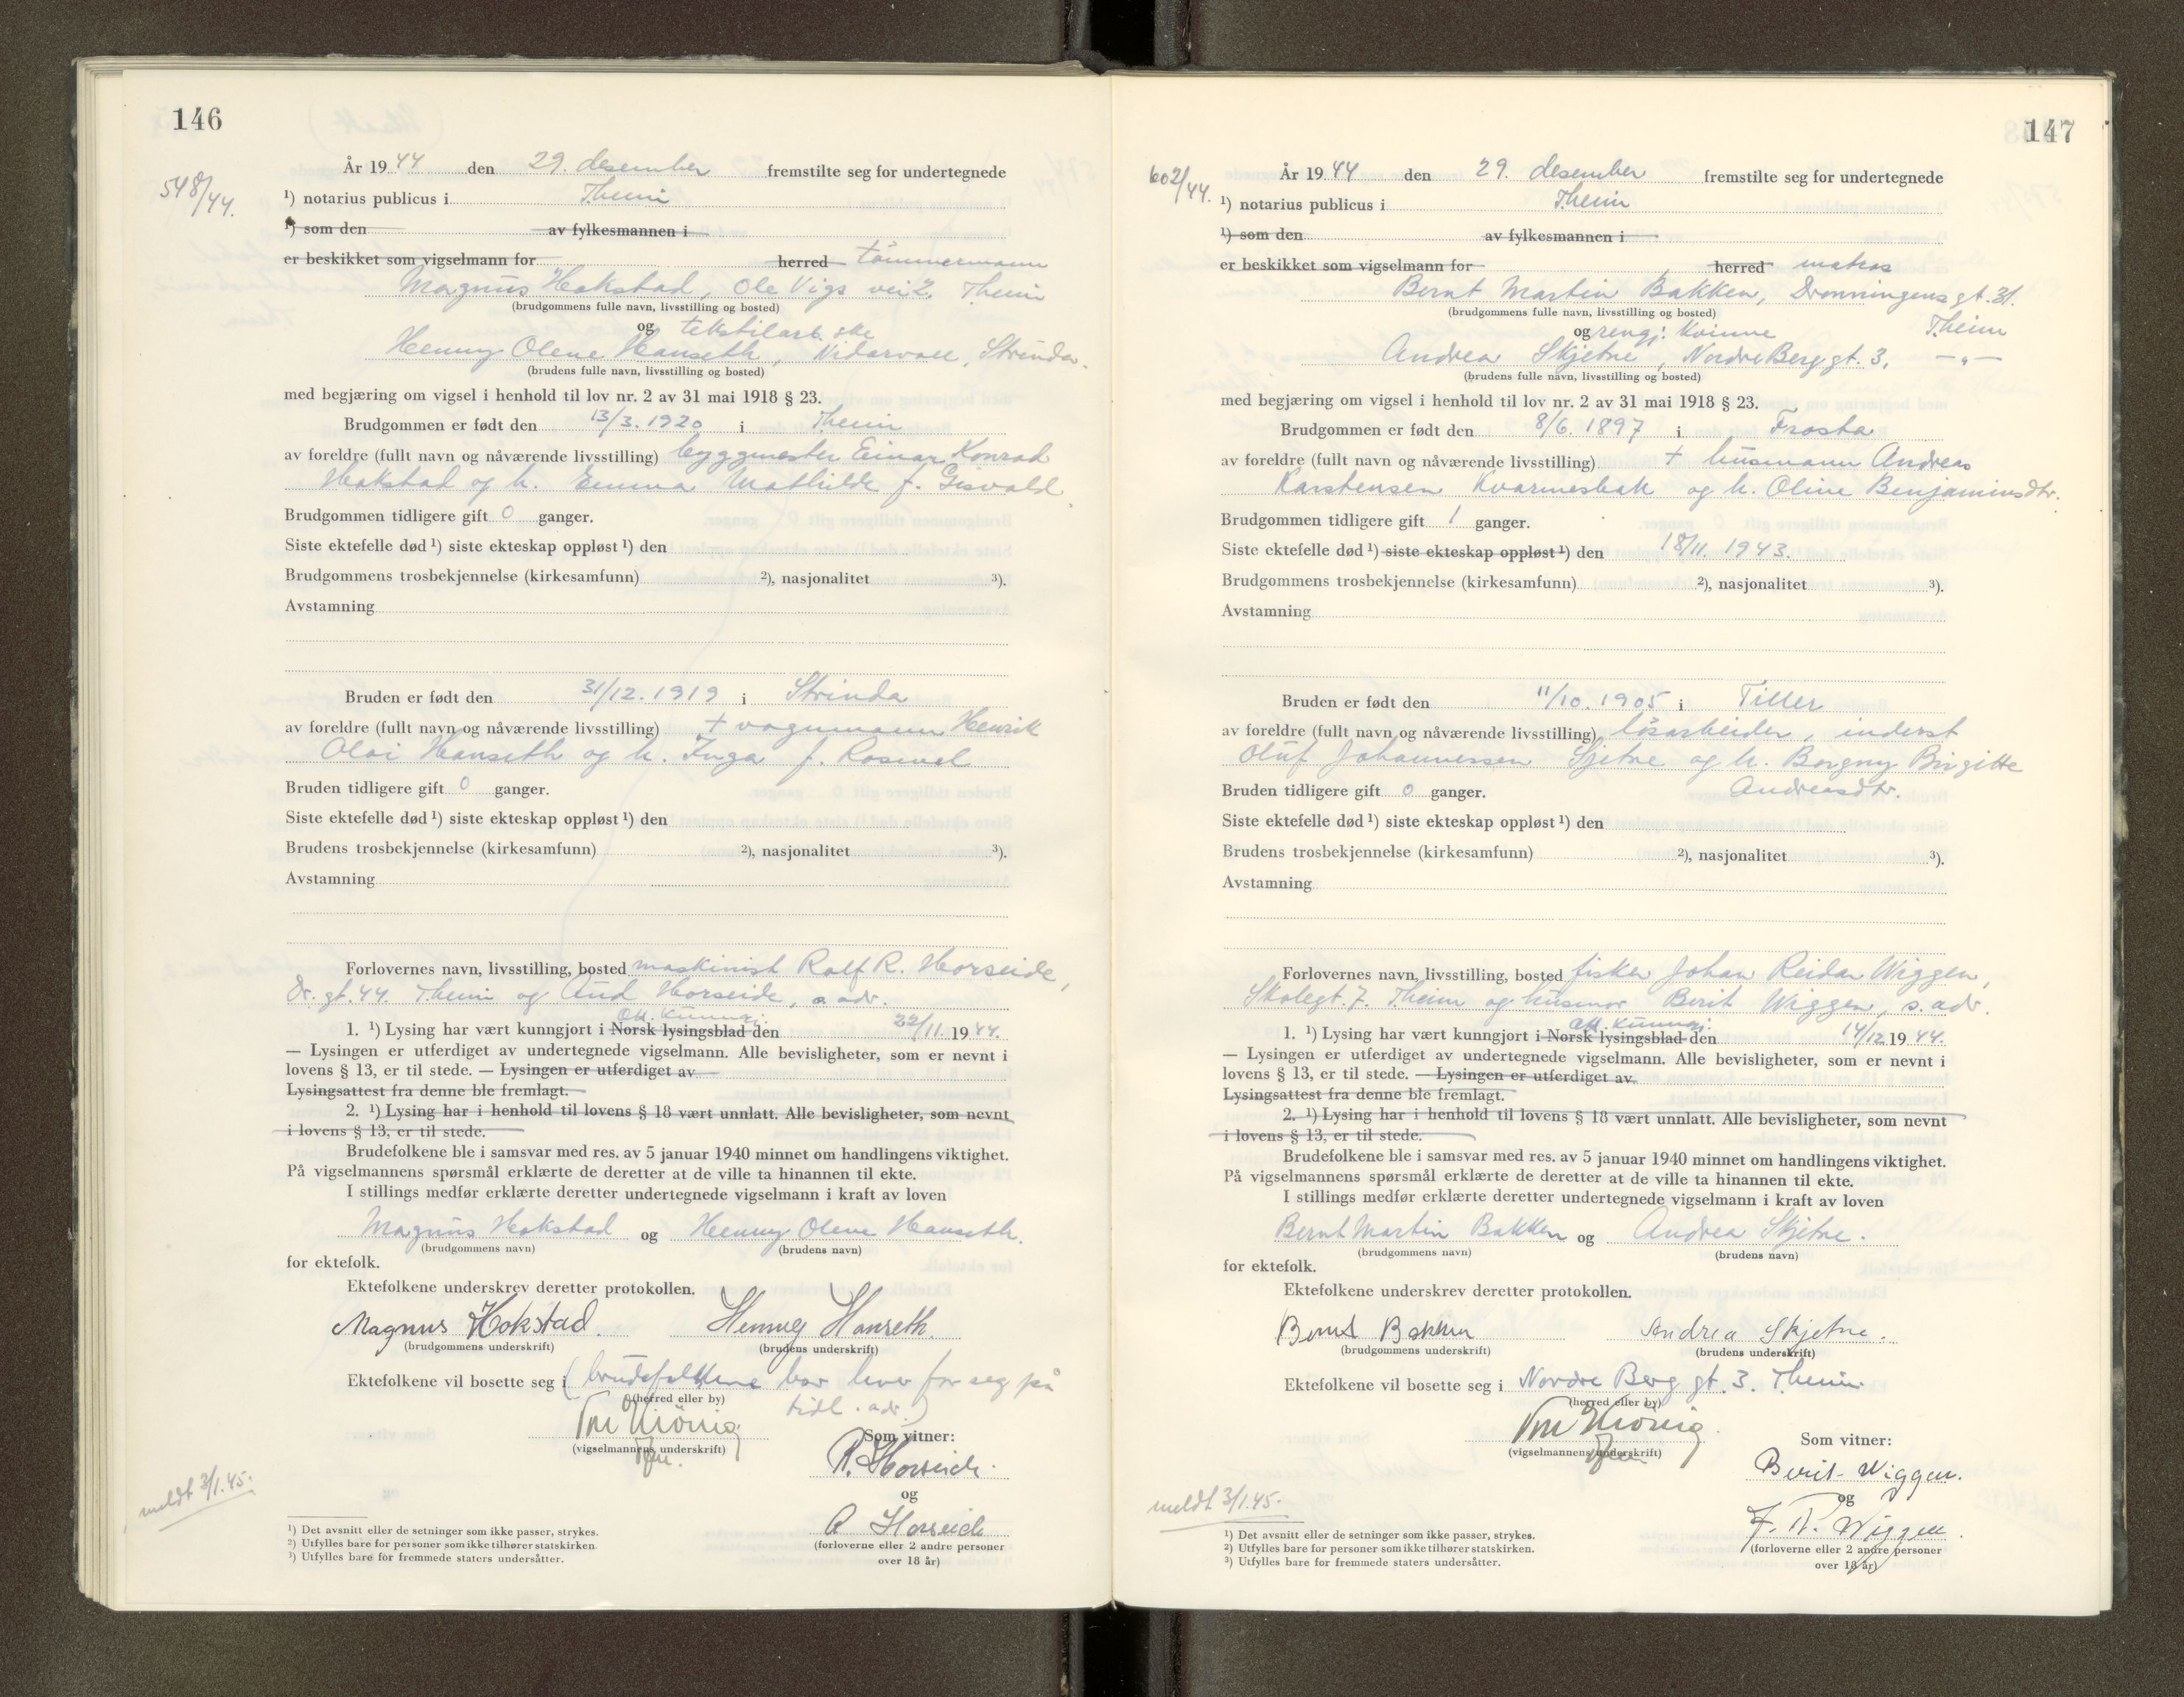 146
548/44.
År 1944 den 29. desember fremstilte seg for undertegnede
¹) notarius publicus i Theim
¹) som den av fylkesmannen i
er beskikket som vigselmann for herred tömmermann
Magnus Hokstad, Ole Vigs vei 2. Theim
(brudgommens fulle navn, livsstilling og bosted)
og tekstilarb.ske
Henny Olene Hanseth, Nidarvoll, Strinda.
(brudens fulle navn, livsstilling og bosted)
med begjæring om vigsel i henhold til lov nr. 2 av 31 mai 1918 § 23.
Brudgommen er født den 13/3. 1920 i Theim
av foreldre (fullt navn og nåværende livsstilling) byggmester Einar Konrad
Hokstad og h. Emma Mathilde f. Gisvold.
Brudgommen tidligere gift 0 ganger.
Siste ektefelle død ¹) siste ekteskap oppløst ¹) den
Brudgommens trosbekjennelse (kirkesamfunn) ²), nasjonalitet ³).
Avstamning
Bruden er født den 31/12. 1919 i Strinda
av foreldre (fullt navn og nåværende livsstilling) + vognmann Henrik
Olai Hanseth og h. Inga f. Rosmel
Bruden tidligere gift 0 ganger.
Siste ektefelle død ¹) siste ekteskap oppløst ¹) den
Brudens trosbekjennelse (kirkesamfunn) ²), nasjonalitet ³).
Avstamning
Forlovernes navn, livsstilling, bosted maskinist Rolf R. Horseide,
Dr. gt. 44. Theim og Aud Horseide, s. adr.
Off. kunngj.
1. ¹) Lysing har vært kunngjort i Norsk lysingsblad den 22/11. 1944.
— Lysingen er utferdiget av undertegnede vigselmann. Alle bevisligheter, som er nevnt i
lovens § 13, er til stede. — Lysingen er utferdiget av
Lysingsattest fra denne ble fremlagt.
2. ¹) Lysing har i henhold til lovens § 18 vært unnlatt. Alle bevisligheter, som nevnt
i lovens § 13, er til stede.
Brudefolkene ble i samsvar med res. av 5 januar 1940 minnet om handlingens viktighet.
På vigselmannens spørsmål erklærte de deretter at de ville ta hinannen til ekte.
I stillings medfør erklærte deretter undertegnede vigselmann i kraft av loven
Magnus Hokstad og Henny Olene Hanseth.
(brudgommens navn) (brudens navn)
for ektefolk.
Ektefolkene underskrev deretter protokollen.
Magnus Hokstad. Henny Hanseth.
(brudgommens underskrift) (brudens underskrift)
Ektefolkene vil bosette seg i (brudefolkene bor hver for seg på
(herred eller by) tidl. adr.)
(vigselmannens underskrift) Som vitner:
R. Horseide.
og
A Horseide
(forloverne eller 2 andre personer
over 18 år)
meldt 3/1.45.
¹) Det avsnitt eller de setninger som ikke passer, strykes.
²) Utfylles bare for personer som ikke tilhører statskirken.
³) Utfylles bare for fremmede staters undersåtter.
147
602/44.
År 1944 den 29. desember fremstilte seg for undertegnede
¹) notarius publicus i Theim
¹) som den av fylkesmannen i
er beskikket som vigselmann for herred matros
Bernt Martin Bakken, Dronningens gt. 31.
(brudgommens fulle navn, livsstilling og bosted) Theim
og rengj: kvinne
Andrea Skjetne, Nordre Berg gt. 3, —"—
(brudens fulle navn, livsstilling og bosted)
med begjæring om vigsel i henhold til lov nr. 2 av 31 mai 1918 § 23.
Brudgommen er født den 8/6. 1897 i Frosta
av foreldre (fullt navn og nåværende livsstilling) + husmann Andreas
Karstensen Kvarmesbak og h. Oline Benjaminsdtr.
Brudgommen tidligere gift 1 ganger.
Siste ektefelle død ¹) siste ekteskap oppløst ¹) den 18/11. 1943.
Brudgommens trosbekjennelse (kirkesamfunn) ²), nasjonalitet ³).
Avstamning
Bruden er født den 11/10. 1905 i Tiller
av foreldre (fullt navn og nåværende livsstilling) lösarbeider, inderst
Oluf Johannessen Skjetne og h. Borgny Birgitte
Andreasdtr.
Bruden tidligere gift 0 ganger.
Siste ektefelle død ¹) siste ekteskap oppløst ¹) den
Brudens trosbekjennelse (kirkesamfunn) ²), nasjonalitet ³).
Avstamning
Forlovernes navn, livsstilling, bosted fisker Johan Reidar Wiggen,
Skolegt. 7. Theim og husmor Berit Wiggen, s. adr.
Off. kunngj.
1. ¹) Lysing har vært kunngjort i Norsk lysingsblad den 14/12 1944.
— Lysingen er utferdiget av undertegnede vigselmann. Alle bevisligheter, som er nevnt i
lovens § 13, er til stede. — Lysingen er utferdiget av
Lysingsattest fra denne ble fremlagt.
2. ¹) Lysing har i henhold til lovens § 18 vært unnlatt. Alle bevisligheter, som nevnt
i lovens § 13, er til stede.
Brudefolkene ble i samsvar med res. av 5 januar 1940 minnet om handlingens viktighet.
På vigselmannens spørsmål erklærte de deretter at de ville ta hinannen til ekte.
I stillings medfør erklærte deretter undertegnede vigselmann i kraft av loven
Bernt Martin Bakken og Andrea Skjetne.
(brudgommens navn) (brudens navn)
for ektefolk.
Ektefolkene underskrev deretter protokollen.
Bernt Bakken Andrea Skjetne.
(brudgommens underskrift) (brudens underskrift)
Ektefolkene vil bosette seg i Nordre Berg gt. 3. Theim
(herred eller by)
(vigselmannens underskrift)
Som vitner:
Berit Wiggen.
og
J. R. Wiggen.
(forloverne eller 2 andre personer
over 18 år)
meldt 3/1.45.
¹) Det avsnitt eller de setninger som ikke passer, strykes.
²) Utfylles bare for personer som ikke tilhører statskirken.
³) Utfylles bare for fremmede staters undersåtter.